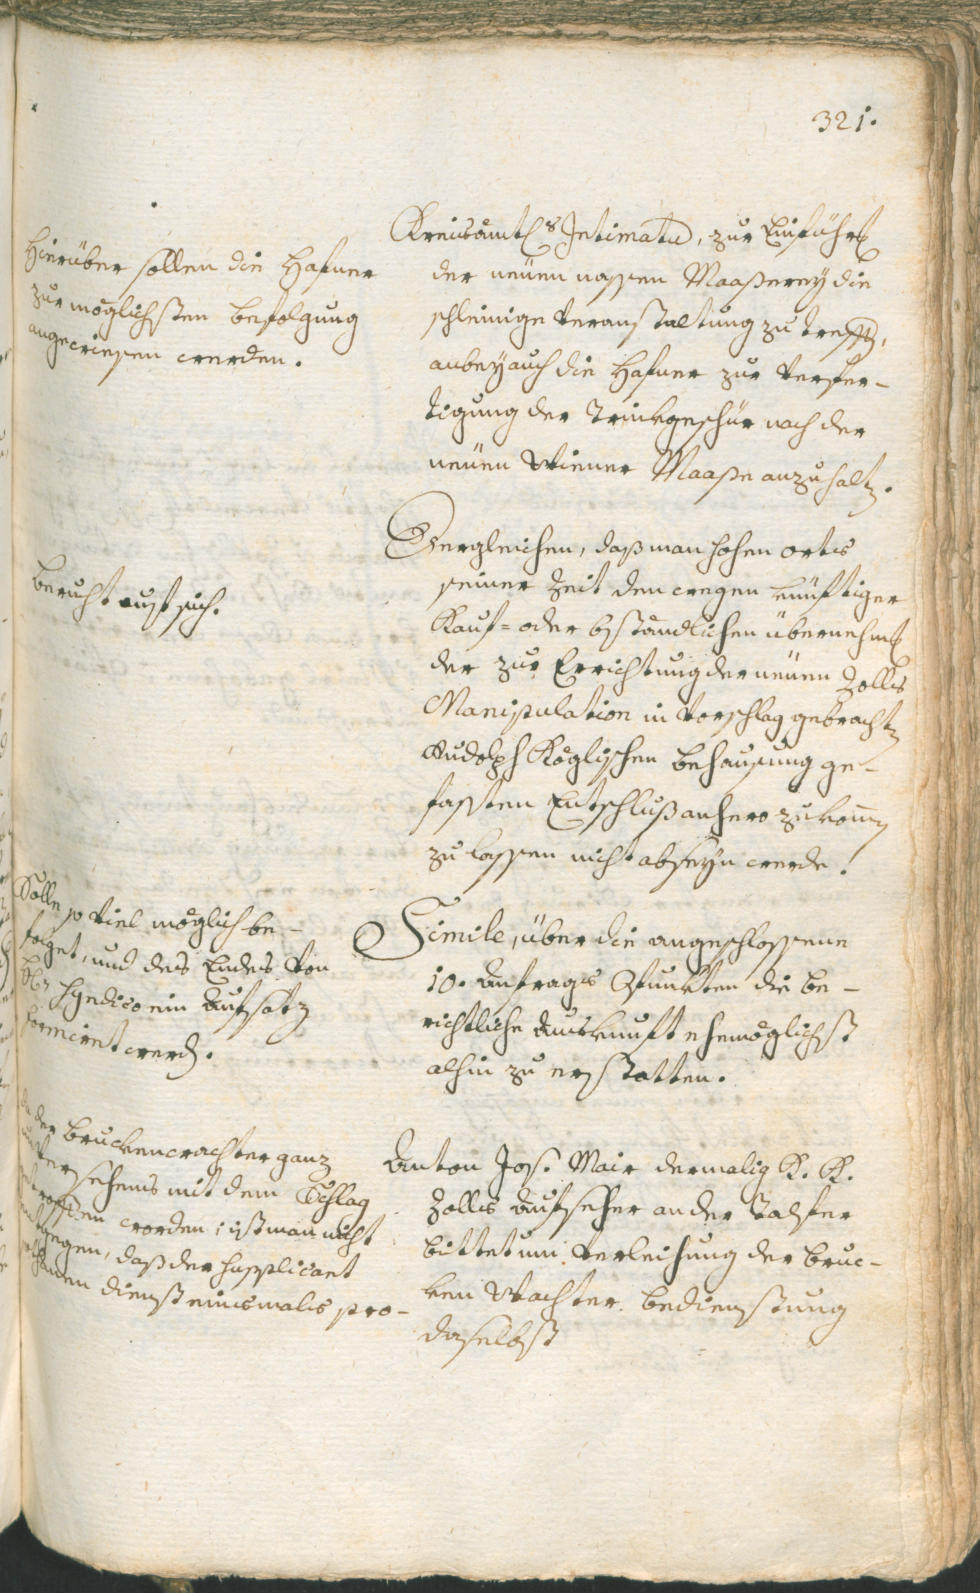 321.
Hierüber sollen die Hafner
zur möglichsten befolgung
angewiesen werden.
Kreisamts Intimatum, zur Einführung
der neuen nassen Maaßerey die
schleinige Veranstaltung zu treffen,
anbey auch die Hafner zur Verfer-
tigung der Trinkgeschür nach der
neuen Wiener Maaße anzuhalten.
beruht auf sich.
Dergleichen, daß man hohen orts
seiner Zeit den wegen künftiger
Kauf- oder bständlichen übernehmung
der zur Errichtung der neuen Zolls
Manipulation in Vorschlag gebrachten
Rudolph Köglischen behausung ge-
fassten Entschluß anhero zukommen
zu lassen nicht abseyn werde.
Solle so viel möglich be-
folget, und des Endes von
H. Syndico ein Aufsatz
formirt werden.
Simile, über die angeschlossene
10. Anfrags Punkten die be-
richtliche Auskunft ehemöglichst
alhin zu erstatten.
da der bruckenwachter ganz
unversehens mit dem Schlag
getroffen worden; ist man nicht
entgegen, daß der Supplicant
dienst einsmals pro-
Anton Jos. Mair dermalig K. K.
Zolls Aufseher an der Talfer
bittet um Verleihung der bruc-
ken Wachter bedienstung
daselbst